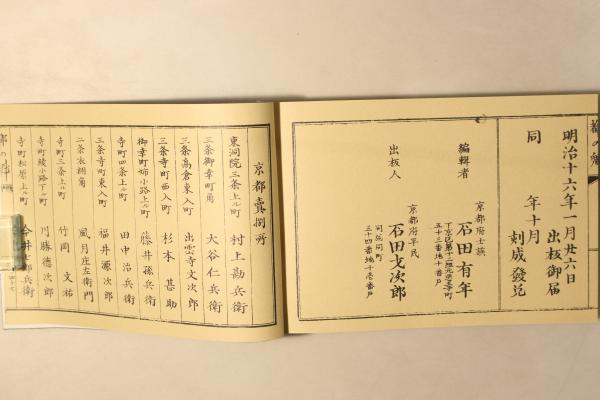 明治十六年一月廿六日
出板御届
同 年十月
刻成發兌
編輯者
京都府士族
石田有年
五十三番地十番戸
出板人
京都府平民
石田戈次郎
同区同町
三十四番地十壱番戸
京都賣捌所
東洞院三条上ル町 村上勘兵衛
三条御幸町角 大谷仁兵衛
三条高倉東入町 出雲寺文次郎
三条寺町西入町 杉本甚助
御幸町姉小路上ル町 藤井孫兵衛
寺町四条上ル町 田中治兵衛
三条寺町東入町 福井源次郎
二条衣棚角 風月庄左衛門
寺町三条上ル町 竹岡文祐
寺町綾小路下ル町 川勝徳次郎
寺町松原上ル町 今井七郎兵衛